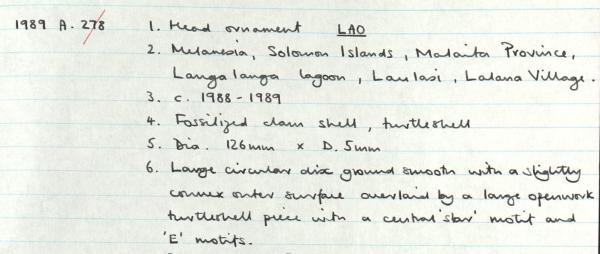 1989 A. 278 1. Head ornament LAO
2. Melanesia, Solomon Islands, Malaita Province,
Langalanga lagoon, Laulasi, Lalana Village.
3. c. 1988-1989
4. Fossilized clam shell, turtleshell
5. Dia. 126mm x D. 5mm
6. Large circular disc ground smooth with a slightly
convex outer surface overlaid by a large openwork
turtleshell piece with a central 'star' motif and
'E' motifs.